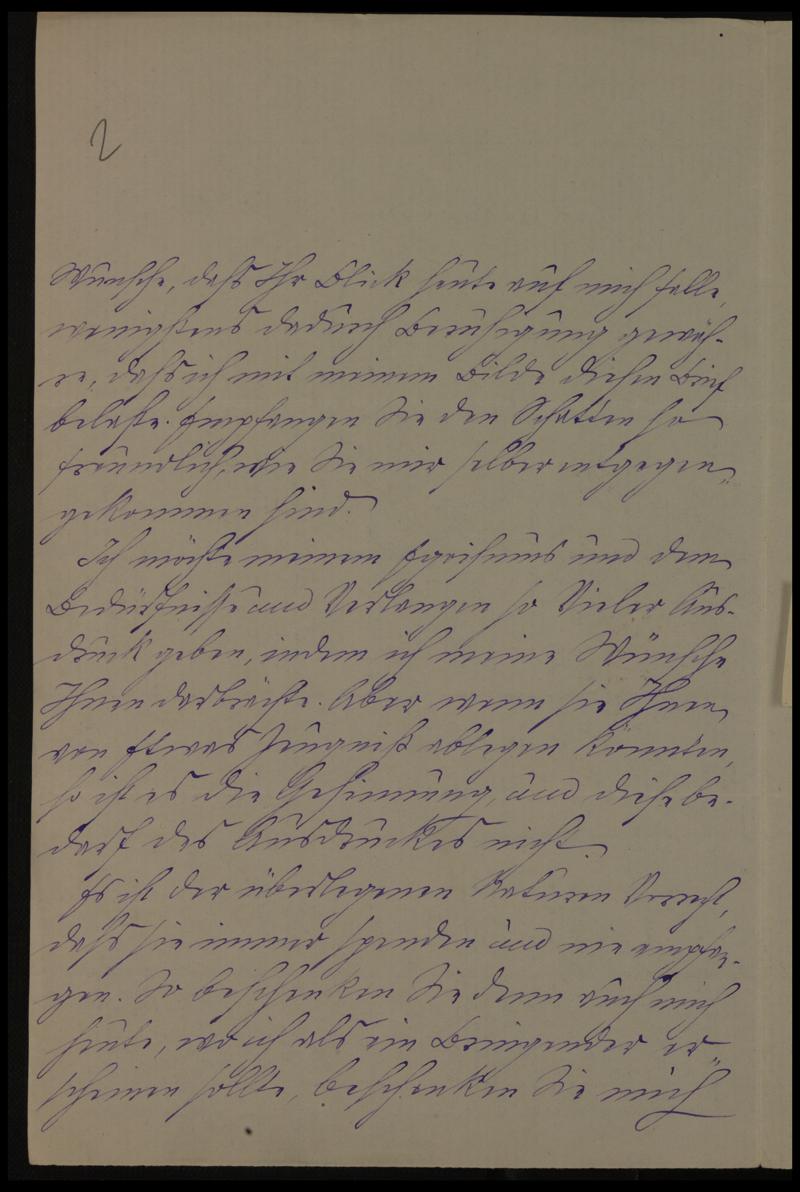 2
Wunsche, dass Ihr Blick heute auf mich falle,
wenigstens dadurch Beruhigung gewäh-
re, dass ich mit meinem Bilde diesen Brief
belaste. Empfangen Sie den Schatten so
freundlich, wie Sie mir selber entgegen-
gekommen sind.
Ich möchte meinem Egoismus und dem
Bedürfnisse und Verlangen so Vieler Aus-
druck geben, indem ich meine Wünsche
Ihnen darbrächte. Aber wenn sie Ihnen
von Etwas Zeugniß ablegen könnten,
so ist es die Gesinnung, und diese be-
darf des Ausdruckes nicht.
Es ist der überlegenen Naturen Vorrecht,
dass sie immer spenden und nie empfan-
gen. So beschenken Sie denn auch mich
heute, wo ich als ein Bringender er-
scheinen sollte, beschenken Sie mich